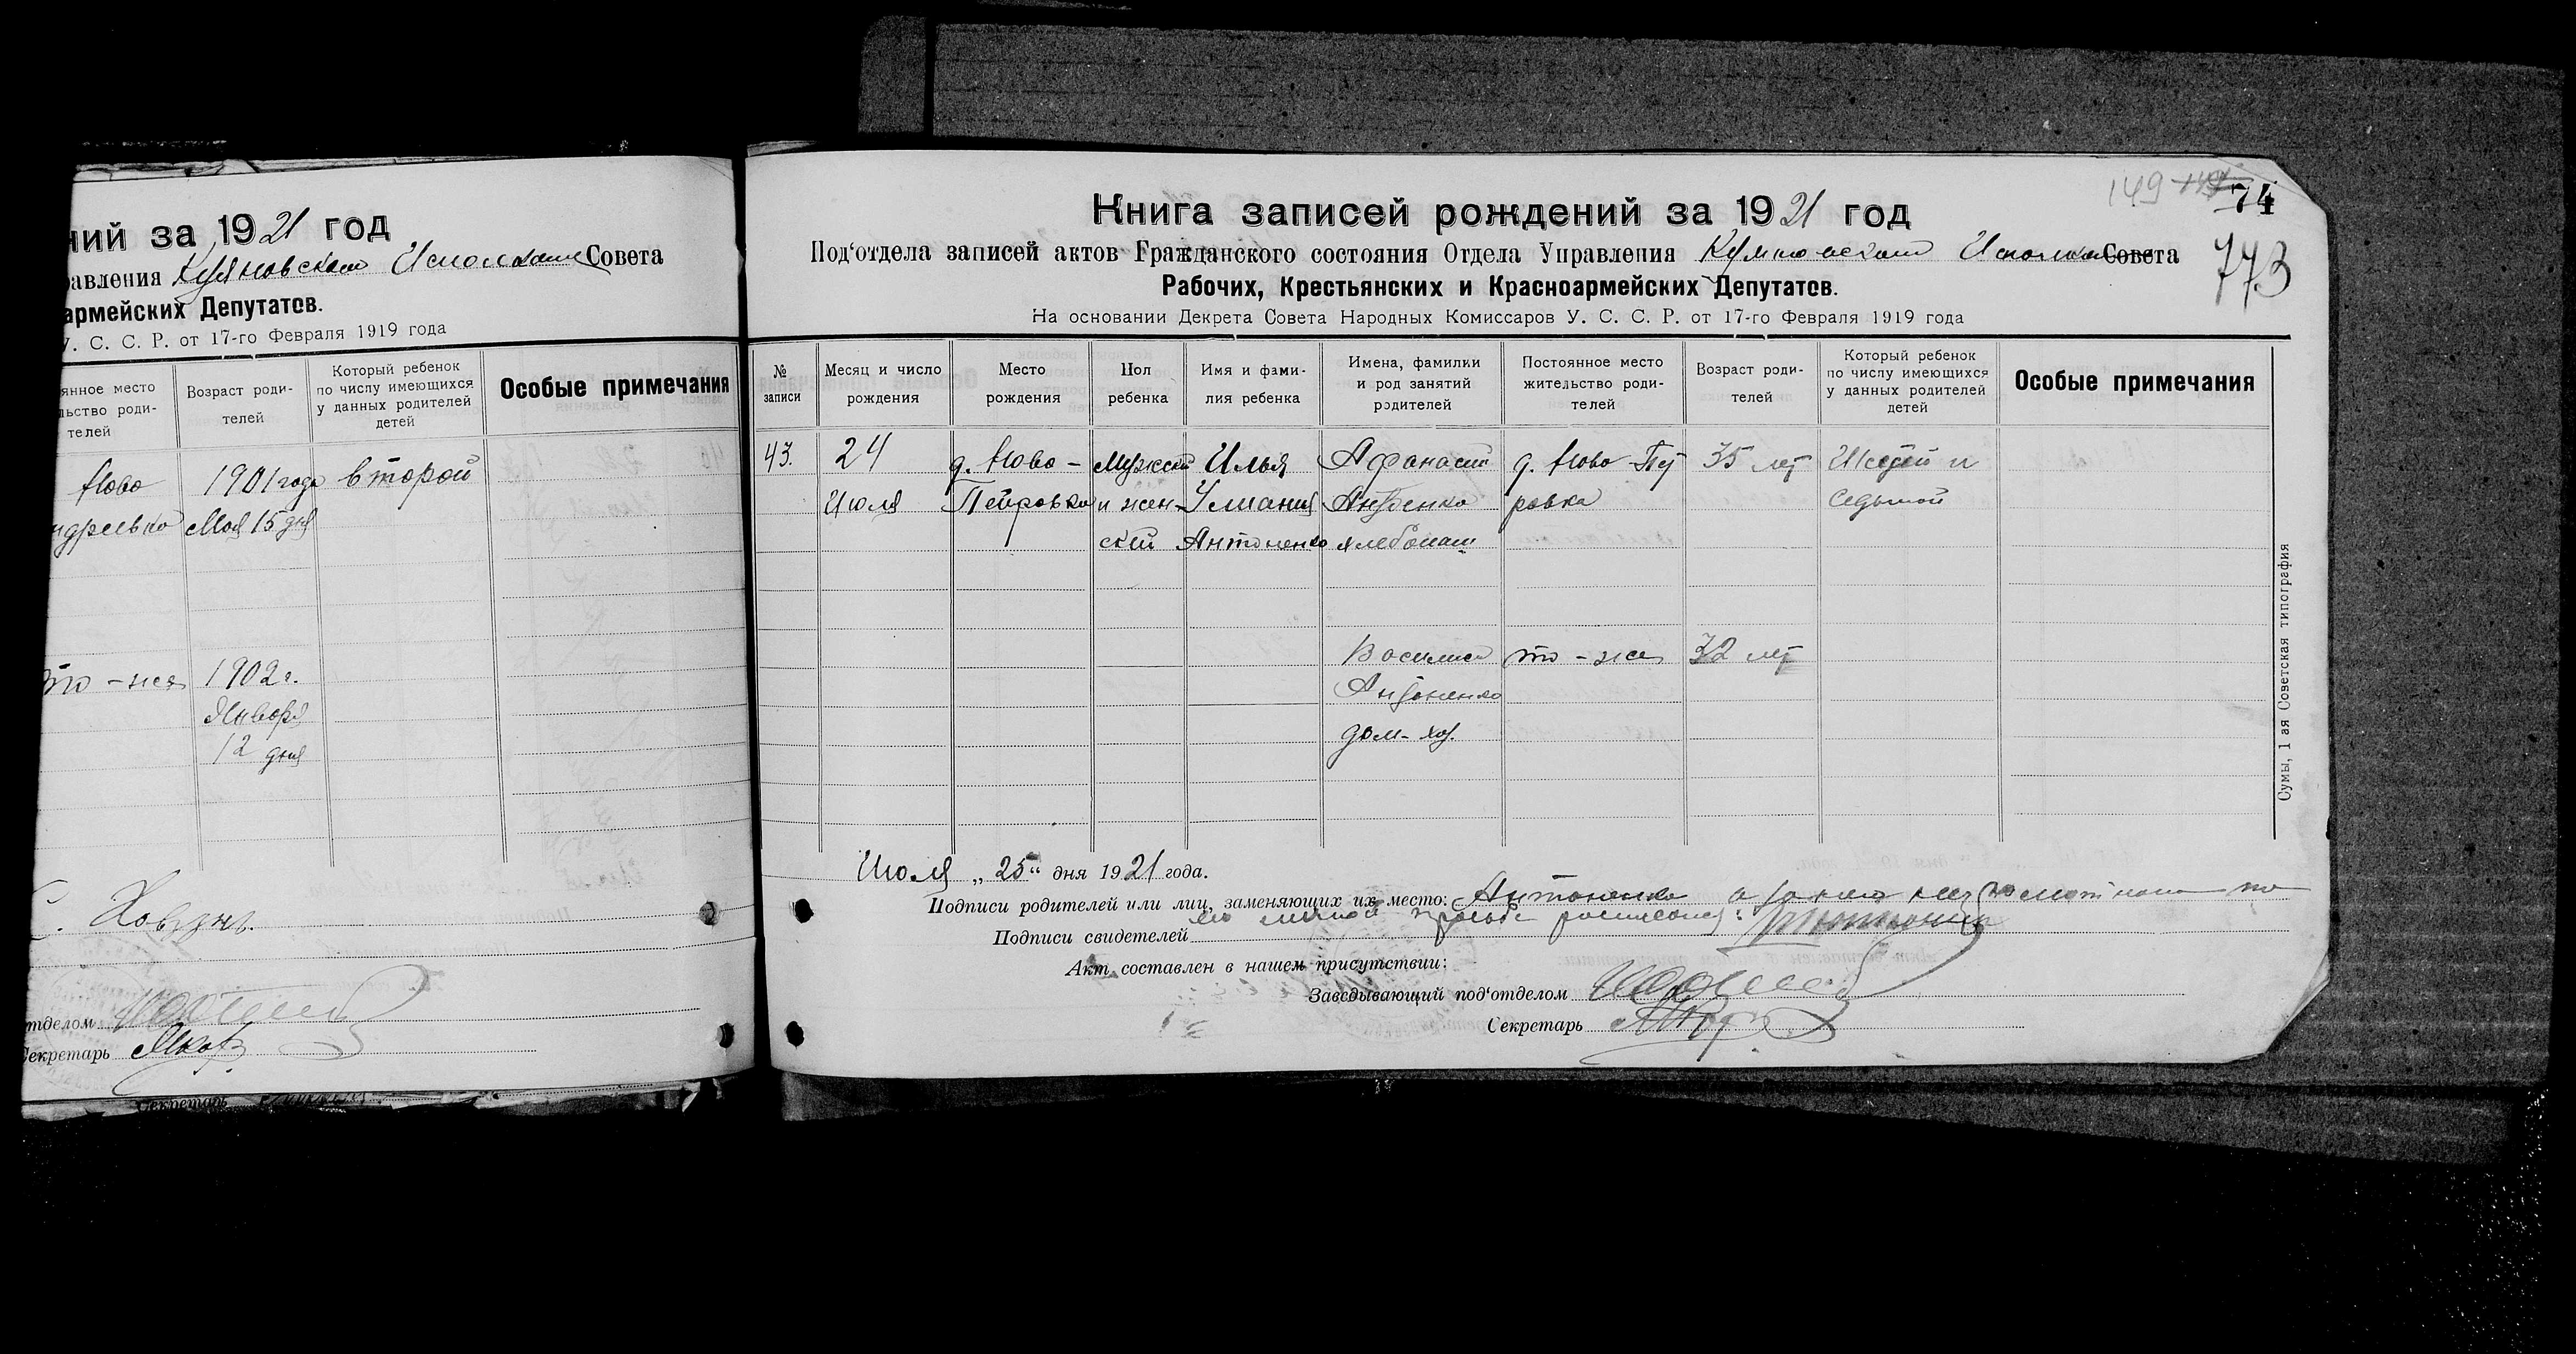 ний за 1921 год
равления Куяновском Исполкоме Совета
армейских Депутатов.
У. С. С. Р. от 17-го Февраля 1919 года
янное место
льство роди-
телей
Возраст роди-
телей
Который ребенок
по числу имеющихся
у данных родителей
детей
Особые примечания
Ново 1901 года второй
ндреевка Мая 15 дня
то-же 1902 г.
Января
12 дня
отделом
Секретарь
Секретарь
149 74
773
Книга записей рождений за 1921 год
Под'отдела записей актов Гражданского состояния Отдела Управления Совета
Рабочих, Крестьянских и Красноармейских Депутатов.
На основании Декрета Совета Народных Комиссаров У. С. С. Р. от 17-го Февраля 1919 года
№
записи
Месяц и число
рождения
Место
рождения
Пол
ребенка
Имя и фами-
лия ребенка
Имена, фамилки
и род занятий
родителей
Постоянное место
жительство роди-
телей
Возраст роди-
телей
Который ребенок
по числу имеющихся
у данных родителей
детей
Особые примечания
43. 24 д. Ново- Мужской Илья Афанасий д. Ново-Пет 35 лет Шестой и
Июля Петровка и жен- Улиания ровка седьмой
ский Антоненко хлебопаш
Василиса то-же 32 лет
Антоненко
дом-хоз.
Июля „25“ дня 1921 года.
Подписи родителей или лиц, заменяющих их место: Антоненко а за него неграмотного по
его личной просьбе росписался:
Подписи свидетелей
Акт составлен в нашем присутствии:
Заведывающий под'отделом
Секретарь
Сумы, 1 ая Советская типография